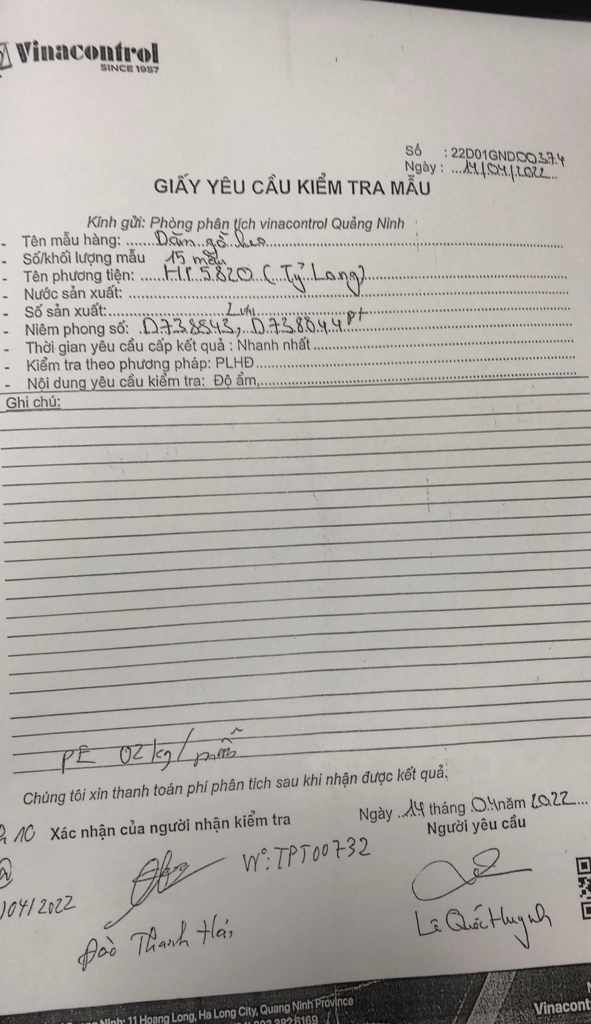 Vinacontrol
SINCE 1957
Số : 22D01GND00374
Ngày : 14/04/2022
GIẤY YÊU CẦU KIỂM TRA MẪU
Kính gửi: Phòng phân tích vinacontrol Quảng Ninh
- Tên mẫu hàng: Dăm gỗ keo
- Số/khối lượng mẫu 15 mẫu
- Tên phương tiện: HP 5820 (Tỷ Long)
- Nước sản xuất:
- Số sản xuất:
- Niêm phong số: D738843, D738844
- Thời gian yêu cầu cấp kết quả : Nhanh nhất
- Kiểm tra theo phương pháp: PLHĐ
- Nội dung yêu cầu kiểm tra: Độ ẩm,
Ghi chú:
PE 02kg/mẫu
Chúng tôi xin thanh toán phí phân tích sau khi nhận được kết quả.
Ngày 14 tháng 04 năm 2022
10 Xác nhận của người nhận kiểm tra
Người yêu cầu
N°: TPT00732
/04/2022
Đào Thanh Hải
Lê Quốc Huynh
Ninh: 11 Hoang Long, Ha Long City, Quang Ninh Province
Vinacont